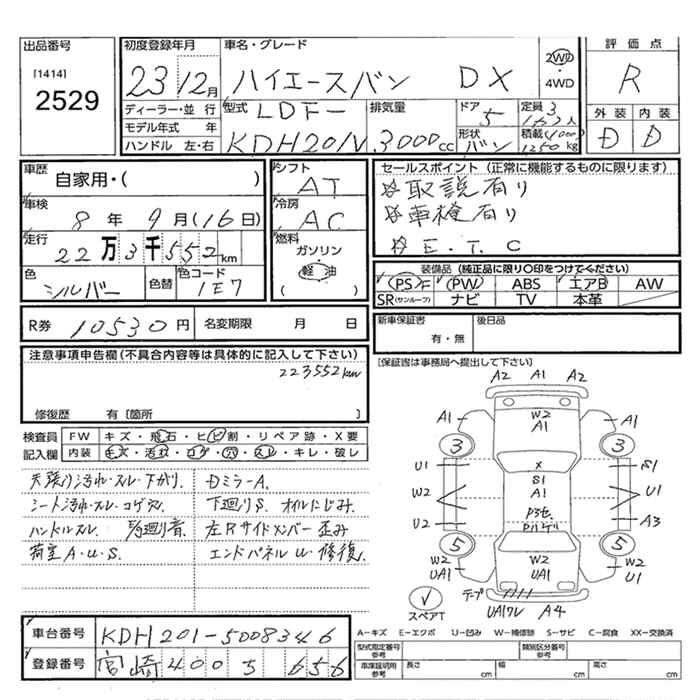 出品番号
[1414]
2529
初度登録年月
23年12月
車名・グレード
ハイエースバン DX
2WD
・
4WD
評価点
R
外装 内装
D D
ディーラー・並行
モデル年式 年
ハンドル 左・右
型式 LDF-
KDH201V
排気量
3000cc
ドア
5
形状
バン
定員 3
人
積載 1000
1250kg
車歴
自家用・( )
車検
8年9月(16日)
走行
22万3千552km
色
シルバー
色替
色コード
1E7
シフト
AT
冷房
AC
燃料
ガソリン
軽油
( )
セールスポイント(正常に機能するものに限ります)
☆取説有り
☆車検有り
☆E.T.C
装備品(純正品に限り○印をつけてください)
PS PW ABS エアB AW
SR(サンルーフ) ナビ TV 本革
R券 10530円 名変期限 月 日
新車保証書
有・無
後日品
[保証書は事務局へ提出して下さい]
注意事項申告欄(不具合内容等は具体的に記入して下さい)
223552km
修復歴 有〔箇所 〕
検査員
記入欄
FW キズ・飛石・ヒビ割・リペア跡・X要
内装 モズ・汚れ・コゲ・穴・スレ・キレ・破レ
天張り汚れ・スレ・下がり. Dミラー A.
シート汚れ・スレ・コゲ穴. 下廻りS. オイルにじみ.
ハンドルスレ. 廻り音. 左Rサイドメンバー歪み
荷室 A・U・S. エンドパネルU・修復.
A2 A1 A2
A1 W2 A1 A1
3 3
U1 X S1
S1
W2 A1 U1
U2 A3
5 5
W2 UA1 W2 UA1 W2 U1
スペアT
UA1ワレ A4
A-キズ E-エクボ U-凹み W-補修跡 S-サビ C-腐食 XX-交換済
車台番号 KDH201-5008346
登録番号 宮崎400 5 656
型式指定番号
参考
類別区分番号
参考
車庫証明用
参考
長さ 幅 高さ